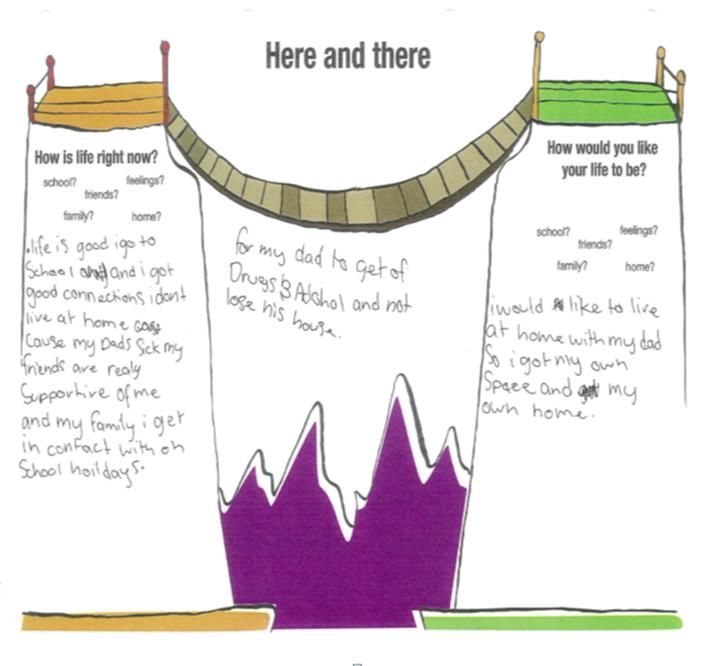 Here and there
How is life right now?
school? feelings?
friends?
family? home?
.life is good i go to
School and i got
good connections i dont
live at home
cause my Dads Sick my
friends are realy
Supportive of me
and my family i get
in contact with on
School hoildays.
for my dad to get of
Drugs & Alcohol and not
lose his house.
How would you like
your life to be?
school? feelings?
friends?
family? home?
i would like to live
at home with my dad
So i got my own
Space and my
own home.